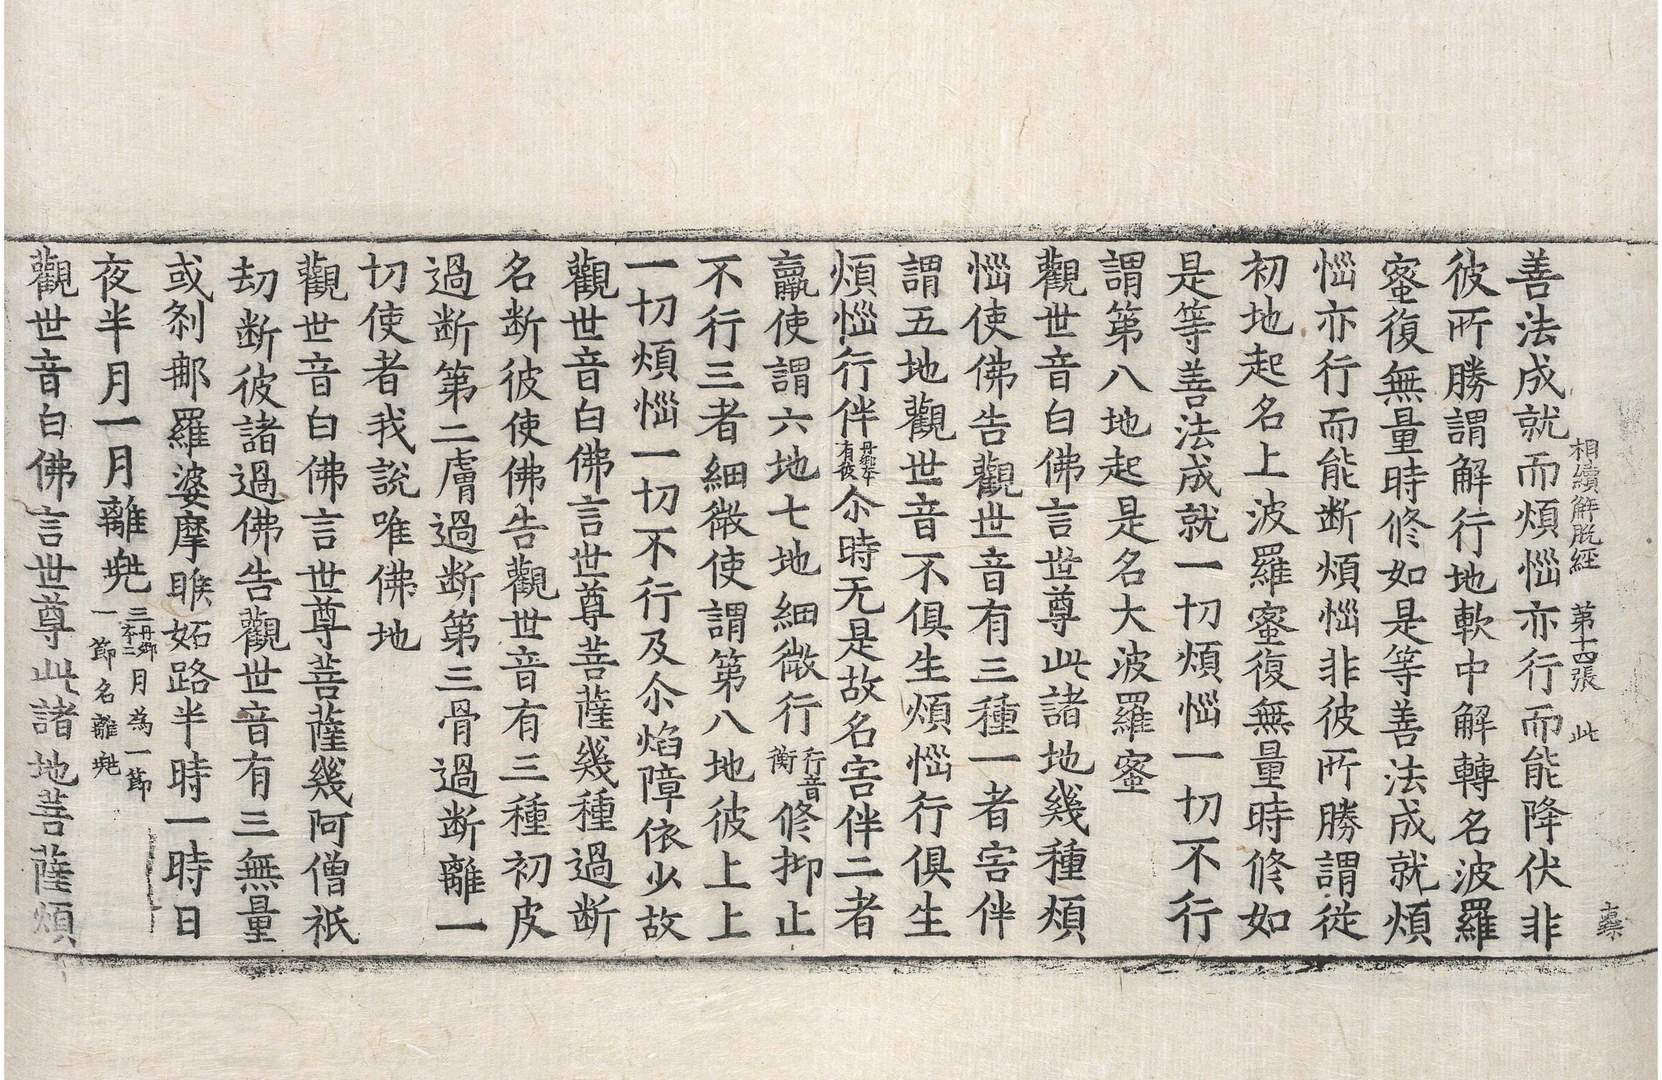 相續解脫經 第十四張 此
善法成就而煩惱亦行而能降伏非
彼所勝謂解行地軟中解轉名波羅
蜜復無量時修如是等善法成就煩
惱亦行而能断煩惱非彼所勝謂從
初地起名上波羅蜜復無量時修如
是等善法成就一切煩惱一切不行
謂第八地起是名大波羅蜜
觀世音白佛言世尊此諸地幾種煩
惱使佛告觀世音有三種一者害伴
謂五地觀世音不俱生煩惱行俱生
煩惱行伴丹鄉本有彼尒時无是故名害伴二者
羸使謂六地七地細微行行音衡修抑止
不行三者細微使謂第八地彼上上
一切煩惱一切不行及尒焰障依少故
觀世音白佛言世尊菩薩幾種過断
名断彼使佛告觀世音有三種初皮
過断第二膚過断第三骨過断離一
切使者我說唯佛地
觀世音白佛言世尊菩薩幾阿僧祇
劫断彼諸過佛告觀世音有三無量
或刹那羅婆摩睺妬路半時一時日
夜半月一月離兠三丹鄉本二月為一節一節名離兠
觀世音白佛言世尊此諸地菩薩煩